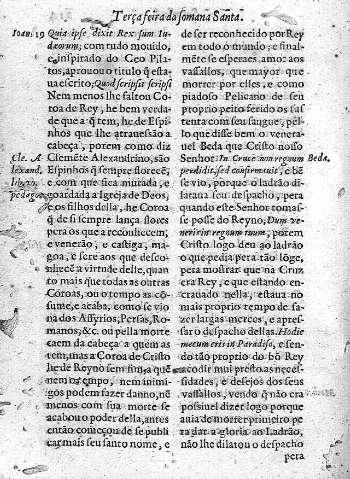 Terça feira da somana Santa.
Ioan. 19
Quia ipse dixit Rex sum Iu-
dæorum; com tudo mouido,
e inspirado do Ceo Pila-
tos, aprouou o titulo q̃ esta-
ua escrito; Quod scripsi scripsi
Nem menos lhe faltou Co-
roa de Rey, he bem verda-
de que a q̃ tem, he de Espi-
nhos que lhe atrauessão a
cabeça, porem como diz
Cle. A-
lexand.
libr.
pedago.
Clemẽte Alexandrino, são
Espinhos q̃ sempre florecẽ,
e com que fica murada, e
goardada a Igreja de Deos,
e os filhos della, he Coroa
q̃ de si sempre lança flores
pera os que a reconhecem,
e venerão, e castiga, ma-
goa, e fere aos que desco-
nhecẽ a virtude della, quan
to mais que todas as outras
Coroas, ou o tempo as cõ-
sume, e acaba, como se vio
na dos Assyrios, Persas, Ro-
manos, &c. ou pella morte
caem da cabeça a quem as
tem, mas a Coroa de Cristo
he de Reyno sem fim, a quẽ
nem tempo, nem inimi-
gos podem fazer danno, nẽ
menos com sua morte se
acabou o poder della, antes
então começou de se publi
car mais seu santo nome, e
de ser reconhecido por Rey
em todo o mundo, e final-
mẽte se esperaes amor aos
vassallos, que mayor que
morrer por elles, e como
piadoso Pelicano de seu
proprio peito ferido os sus
tenta com seu sangue, pel-
lo que disse bem o venera-
uel Beda que Cristo nosso
Senhor: In Cruce non regnum
Beda.
perdidit, sed confirmauit, e bẽ
se vio, porque o ladrão di-
lataua seu despacho, pera
quando este Senhor tomas-
se posse do Reyno, Dum ve-
neris in regnum tuum, porem
Cristo logo deu ao ladrão
o que pedia pera tão lõge,
pera mostrar que na Cruz
era Rey, e que estando en-
crauado nella, estaua no
mais proprio tempo de fa-
zer largas merces, e apres-
sar o despacho dellas. Hodie
mecum eris in Paradiso, e sen-
do tão proprio do bõ Rey
acodir mui presto as neces-
sidades, e desejos dos seus
vassallos, vendo q̃ não era
possiuel dizer logo porque
auia de morrer primeiro pe
ra dar a gloria ao Ladrão,
não lhe dilatou o despacho
pera